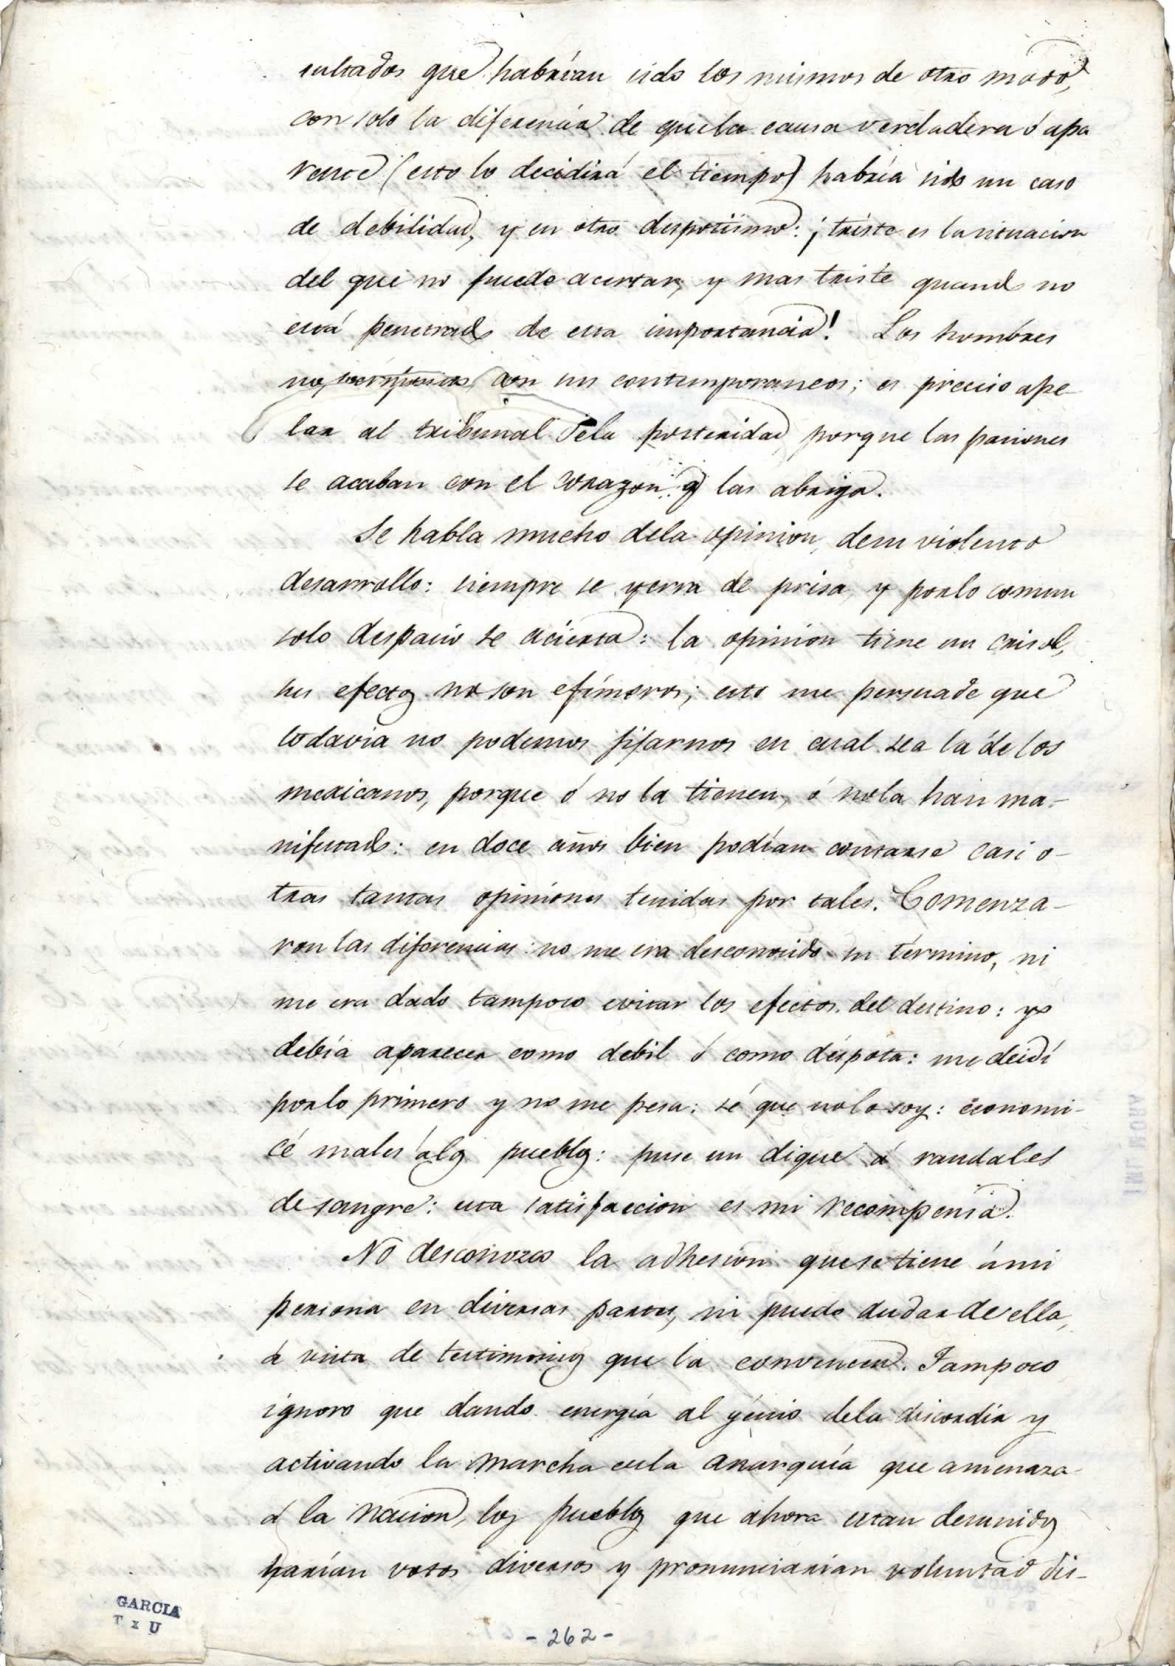 sultados que habrían sido los mismos de otro modo,
con solo la diferencia de que la causa verdadera ó apa
rente (esto lo decidirá el tiempo) habría sido un caso
de debilidad, y en otro despotismo: ¡triste es la situacion
del que no puede acertar, y mas triste quando no
está penetrado de esta importancia! Los hombres
no con sus contemporaneos; es preciso ape-
lar al tribunal dela posteridad, porque las pasiones
se acaban con el corazon q las abriga.
Se habla mucho dela opinion, de su violento
desarrollo: siempre se yerra de prisa, y porlo comun
solo despacio se acierta: la opinion tiene un crisol,
sus efectos no son efímeros; esto me persuade que
todavia no podemos fijarnos en cual sea la de los
mexicanos, porque ó no la tienen, ó nola han ma-
nifestado: en doce años bien podían contarse casi o-
tras tantas opiniones tenidas por tales. Comenza-
ron las diferencias: no me era desconocido su término, ni
me era dado tampoco evitar los efectos del destino: yo
debía aparecer como debil ó como déspota: me decidí
porlo primero y no me pesa: sé que nolo soy: economi-
cé males álos pueblos: puse un dique á raudales
de sangre: esta satisfaccion es mi recompensa.
No desconozco la adhesion que se tiene á mi
persona en diversas partes, ni puedo dudar de ella,
á vista de testimonios que la convencen. Tampoco
ignoro que dando energía al génio dela discordia y
activando la marcha enla anarquía que amenaza
á la Nacion, los pueblos que ahora estan desunidos
harían votos diversos y pronunciarian voluntad dis-
GARCIA
T x U
-262-